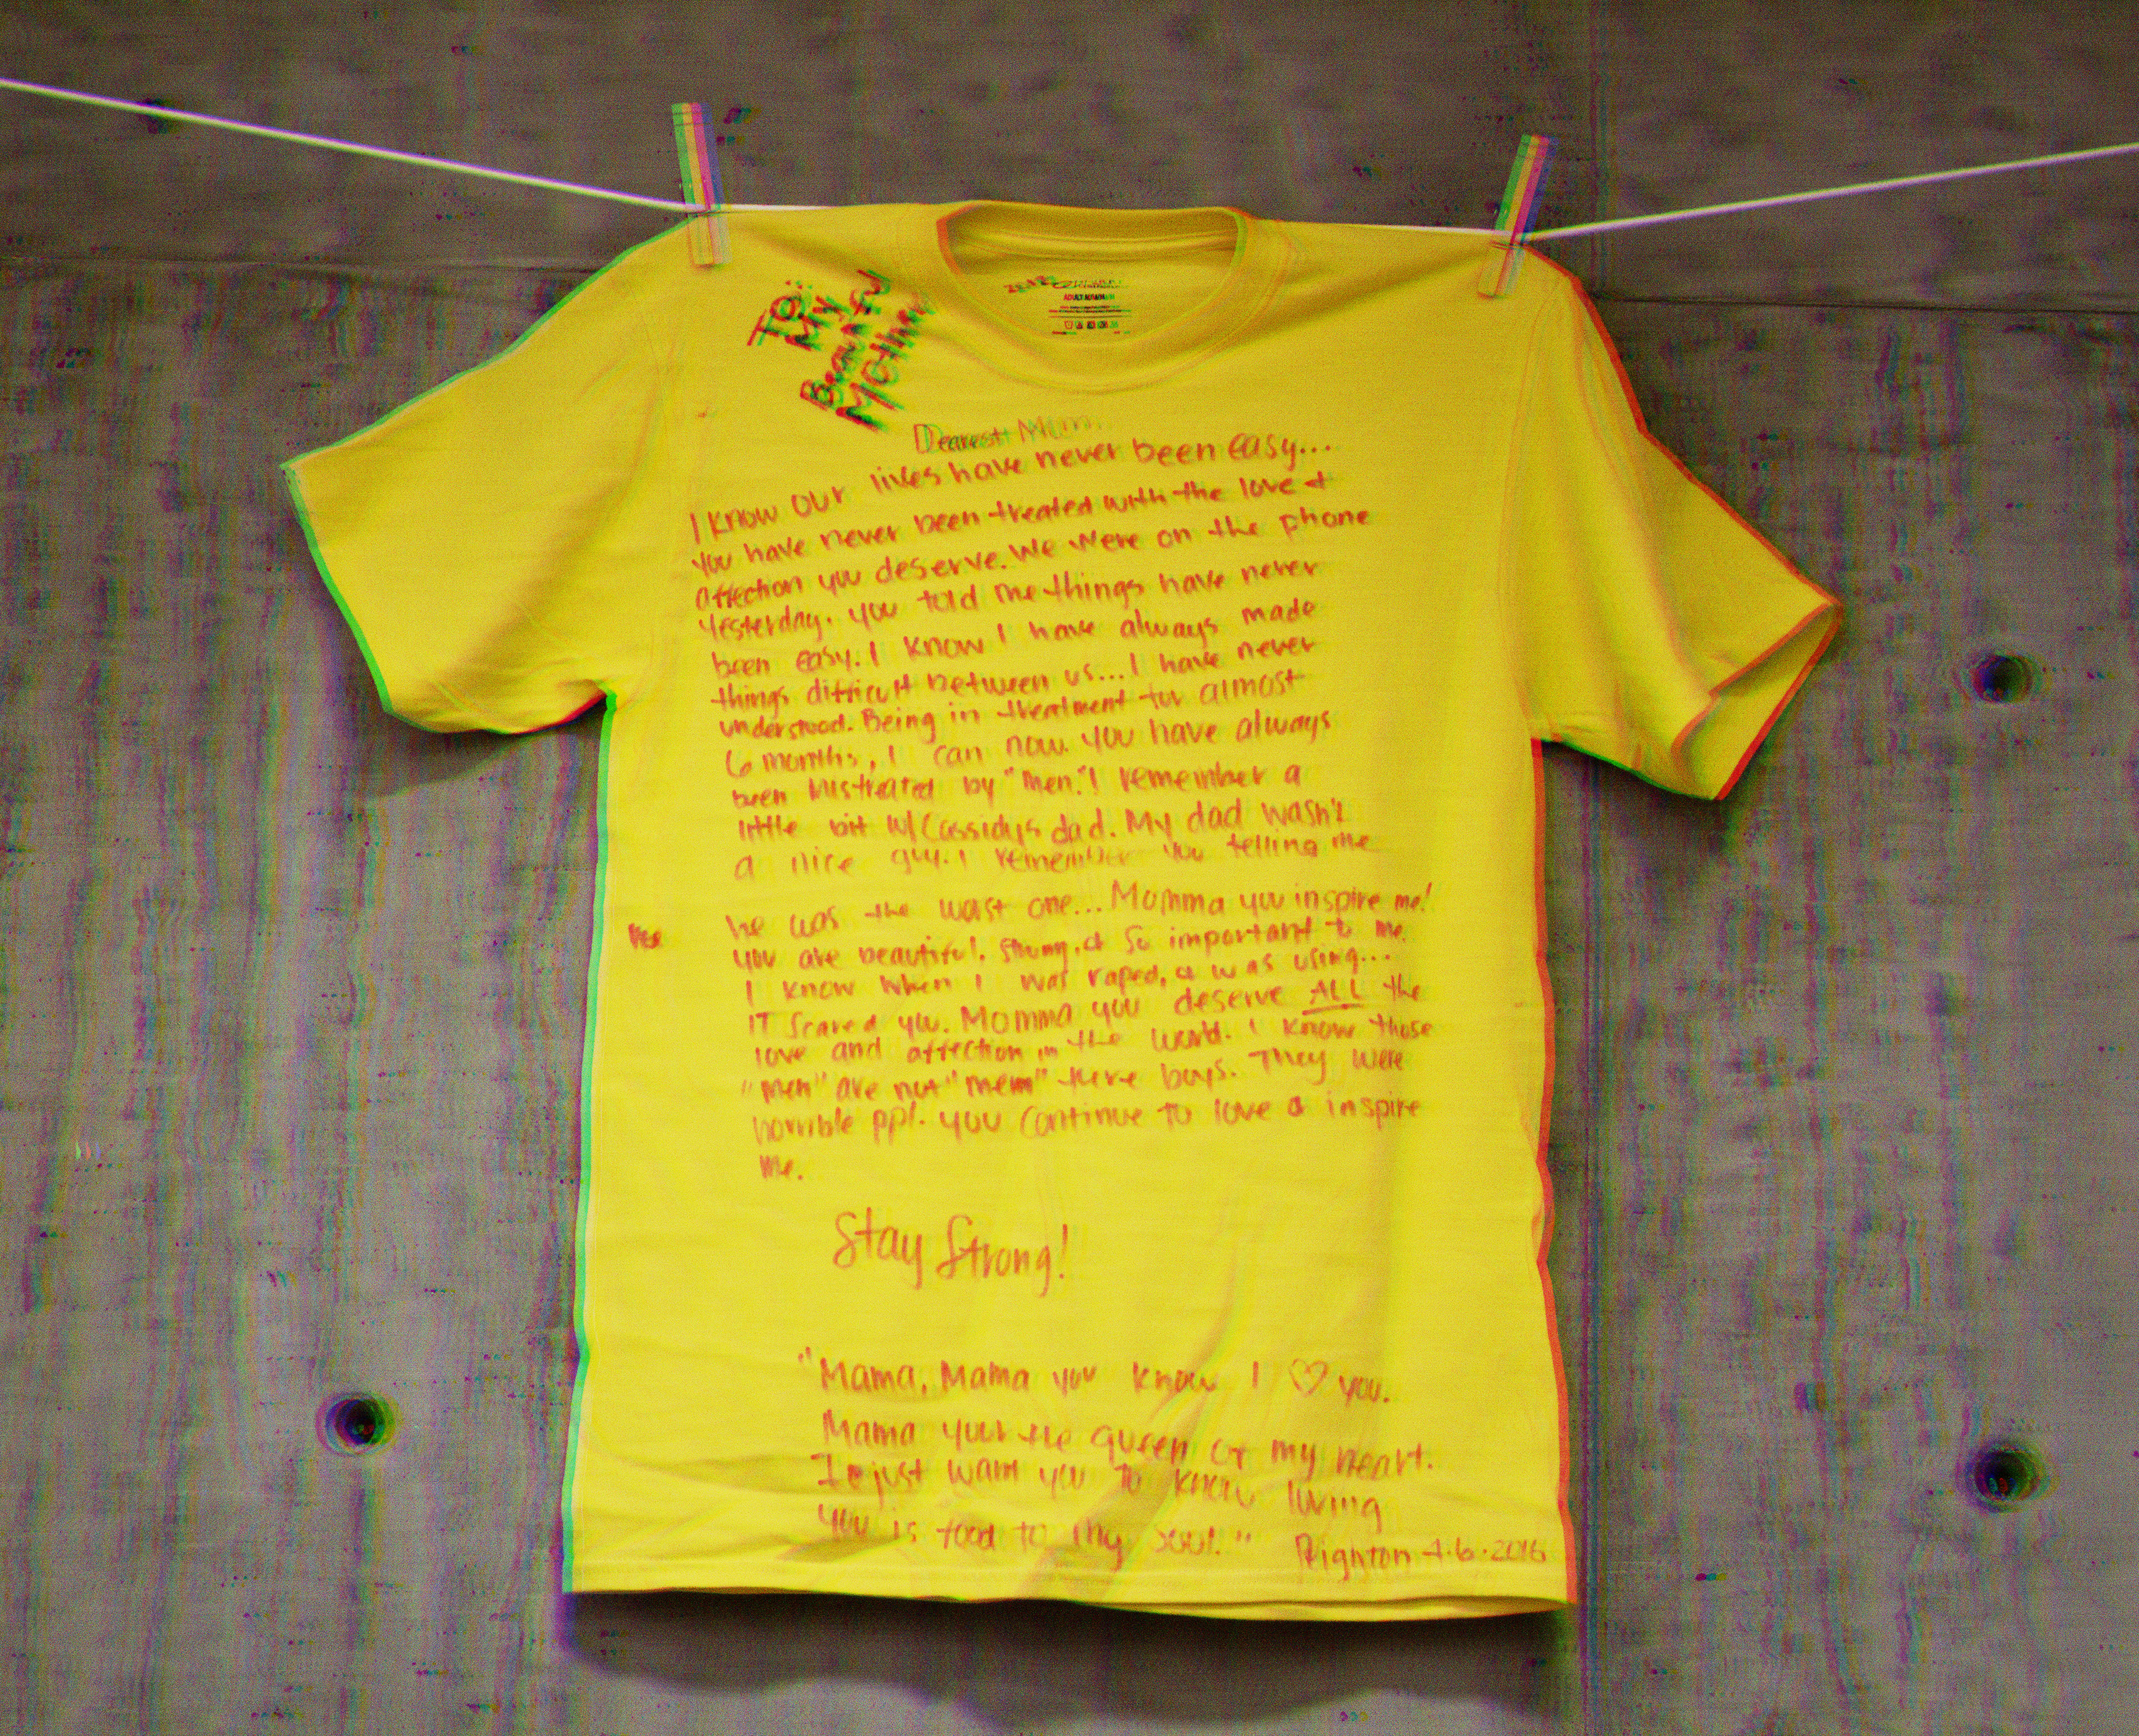 To:
My
Beautiful
Mother
Dearest Mom,
I know our lives have never been easy...
you have never been treated with the love &
affection you deserve. We were on the phone
yesterday. you told me things have never
been easy. I know I have always made
things difficult between us... I have never
understood. Being in treatment for almost
6 months, I can now. you have always
been mistreated by "men." I remember a
little bit w/ Cassidys dad. My dad wasn't
a nice guy. I remember you telling me
he was the worst one... Momma you inspire me!
you are beautiful, strong, & so important to me.
I know when I was raped, & was using...
IT scared you. Momma you deserve ALL the
love and affection in the world. I know those
"men" are not "men" there boys. They were
horrible ppl. you continue to love & inspire
me.
Stay Strong!
"Mama, Mama you know I ♡ you.
Mama your the queen of my heart.
I just want you to know loving
you is food to my soul."
4.6.2016